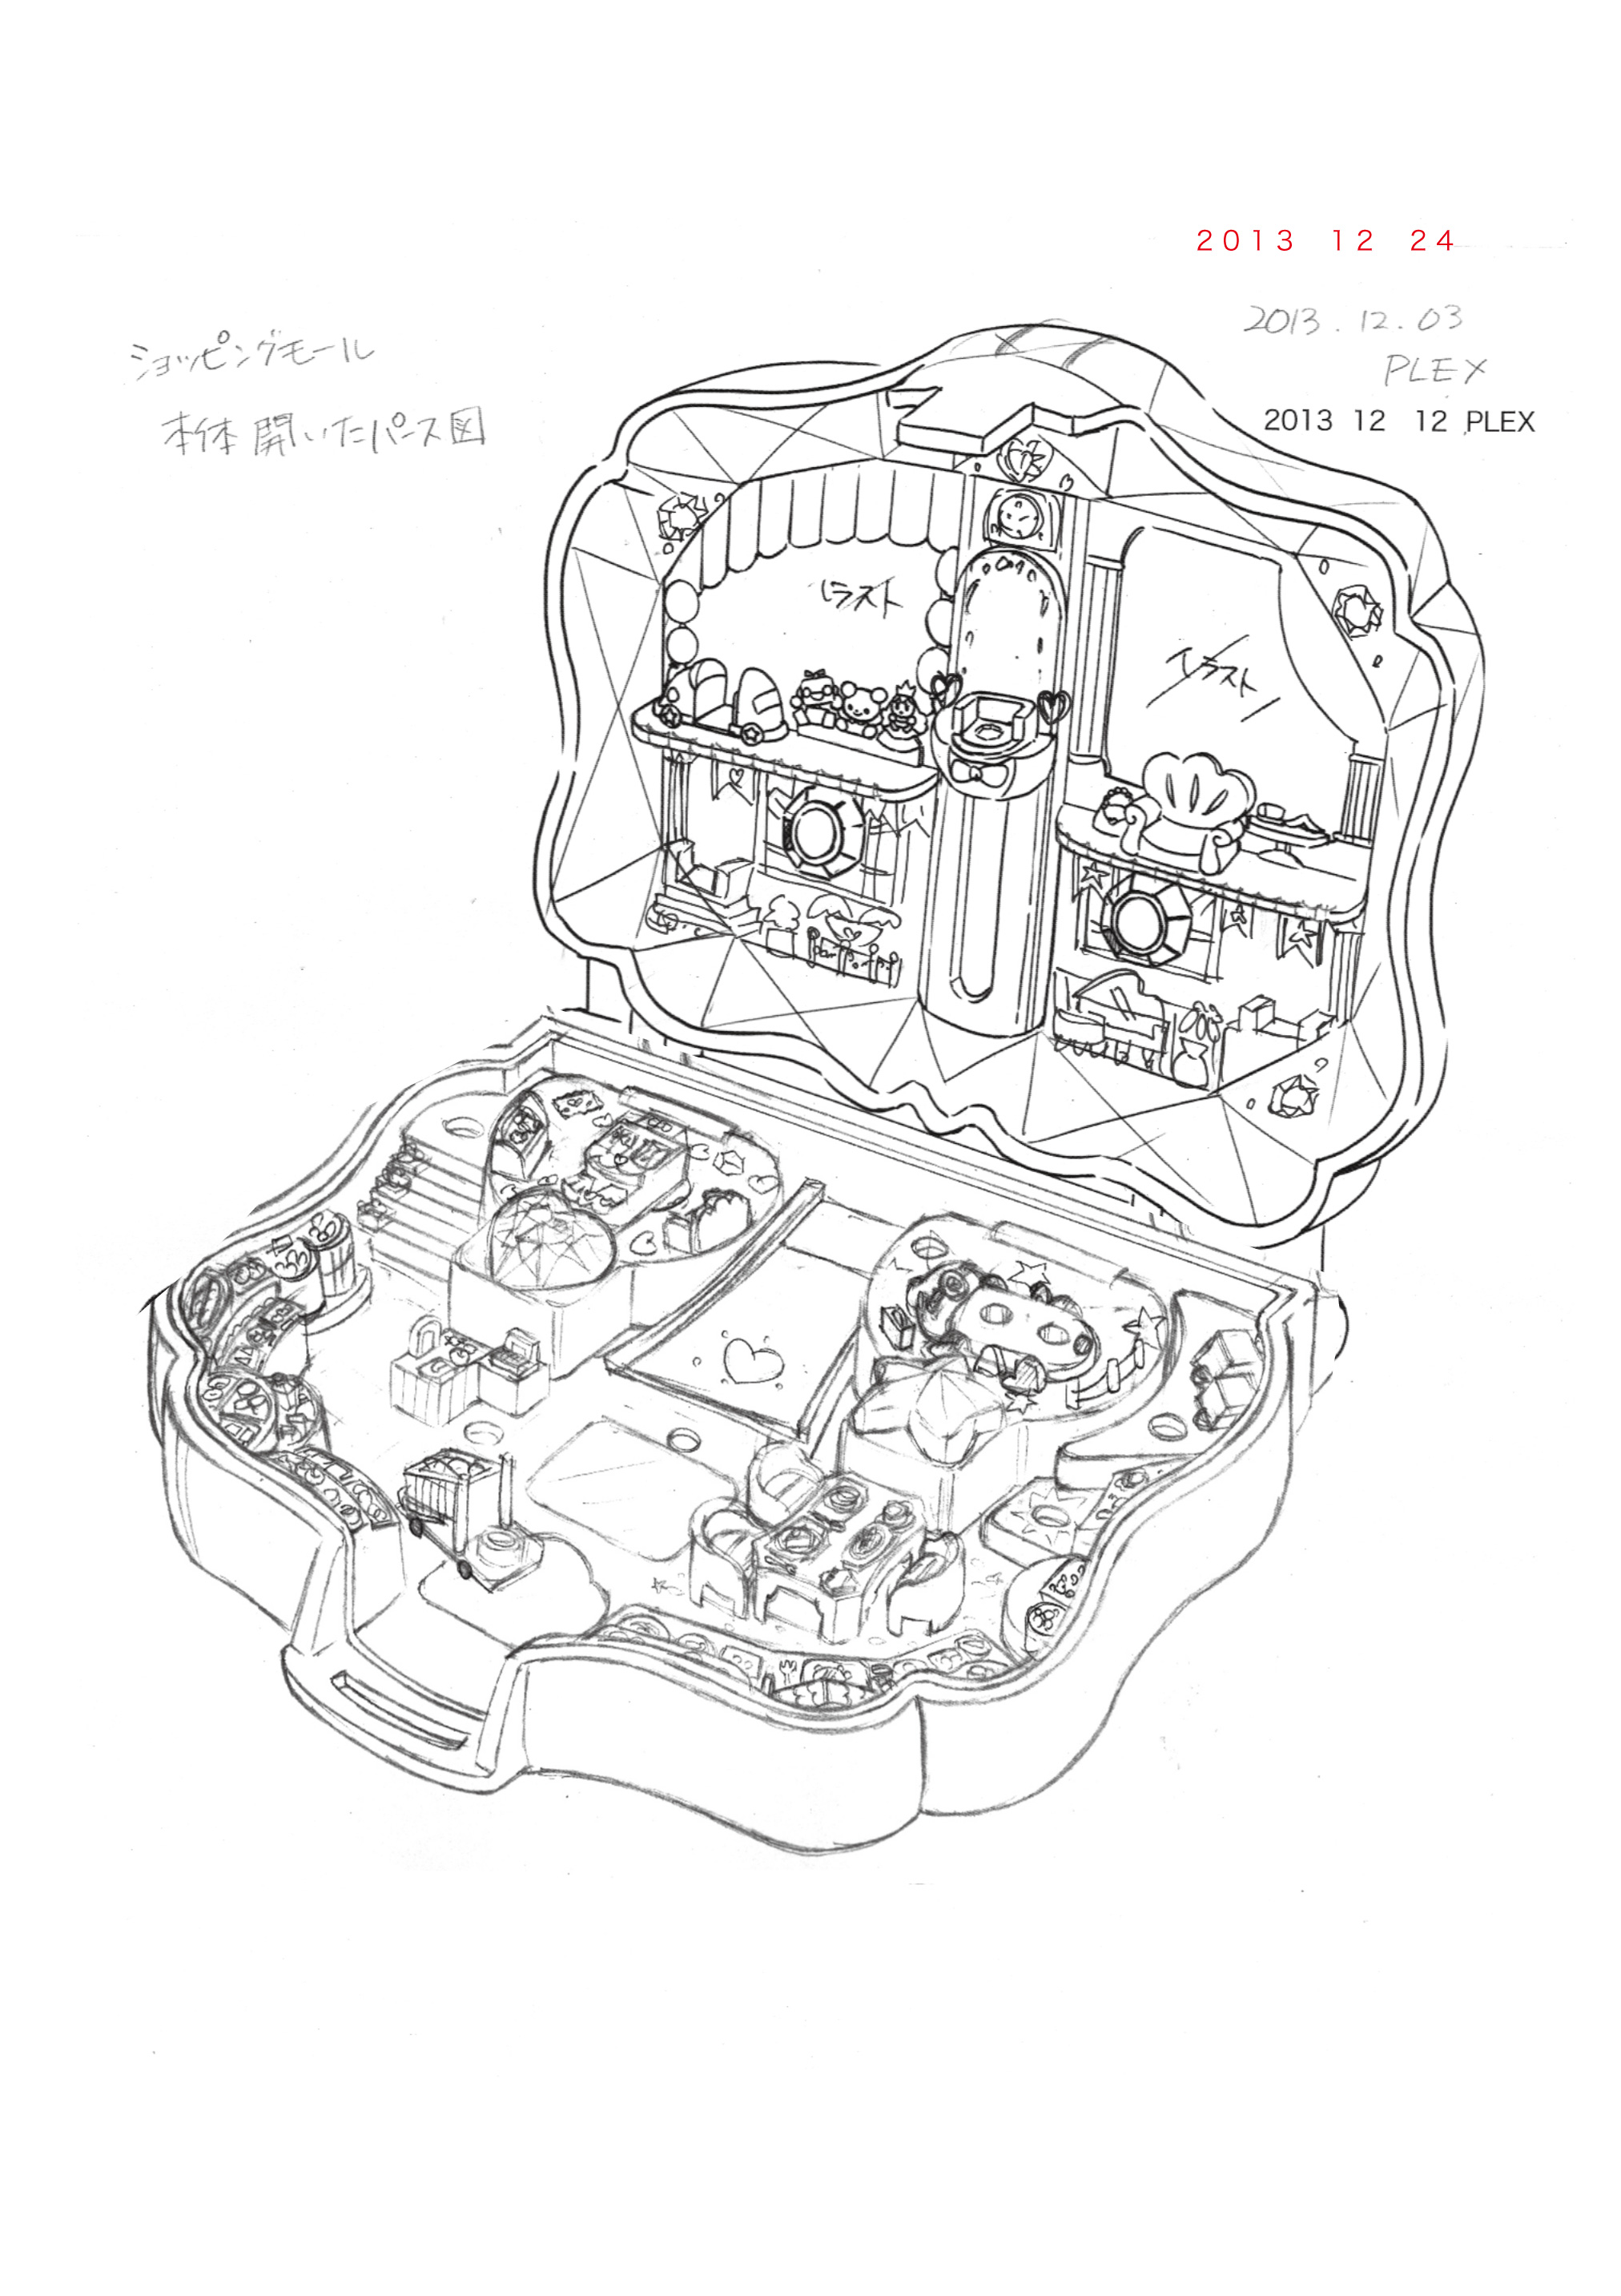 2013 12 24
2013.12.03
PLEX
2013 12 12 PLEX
ショッピングモール
本体開いたパース図
イラスト
イラスト